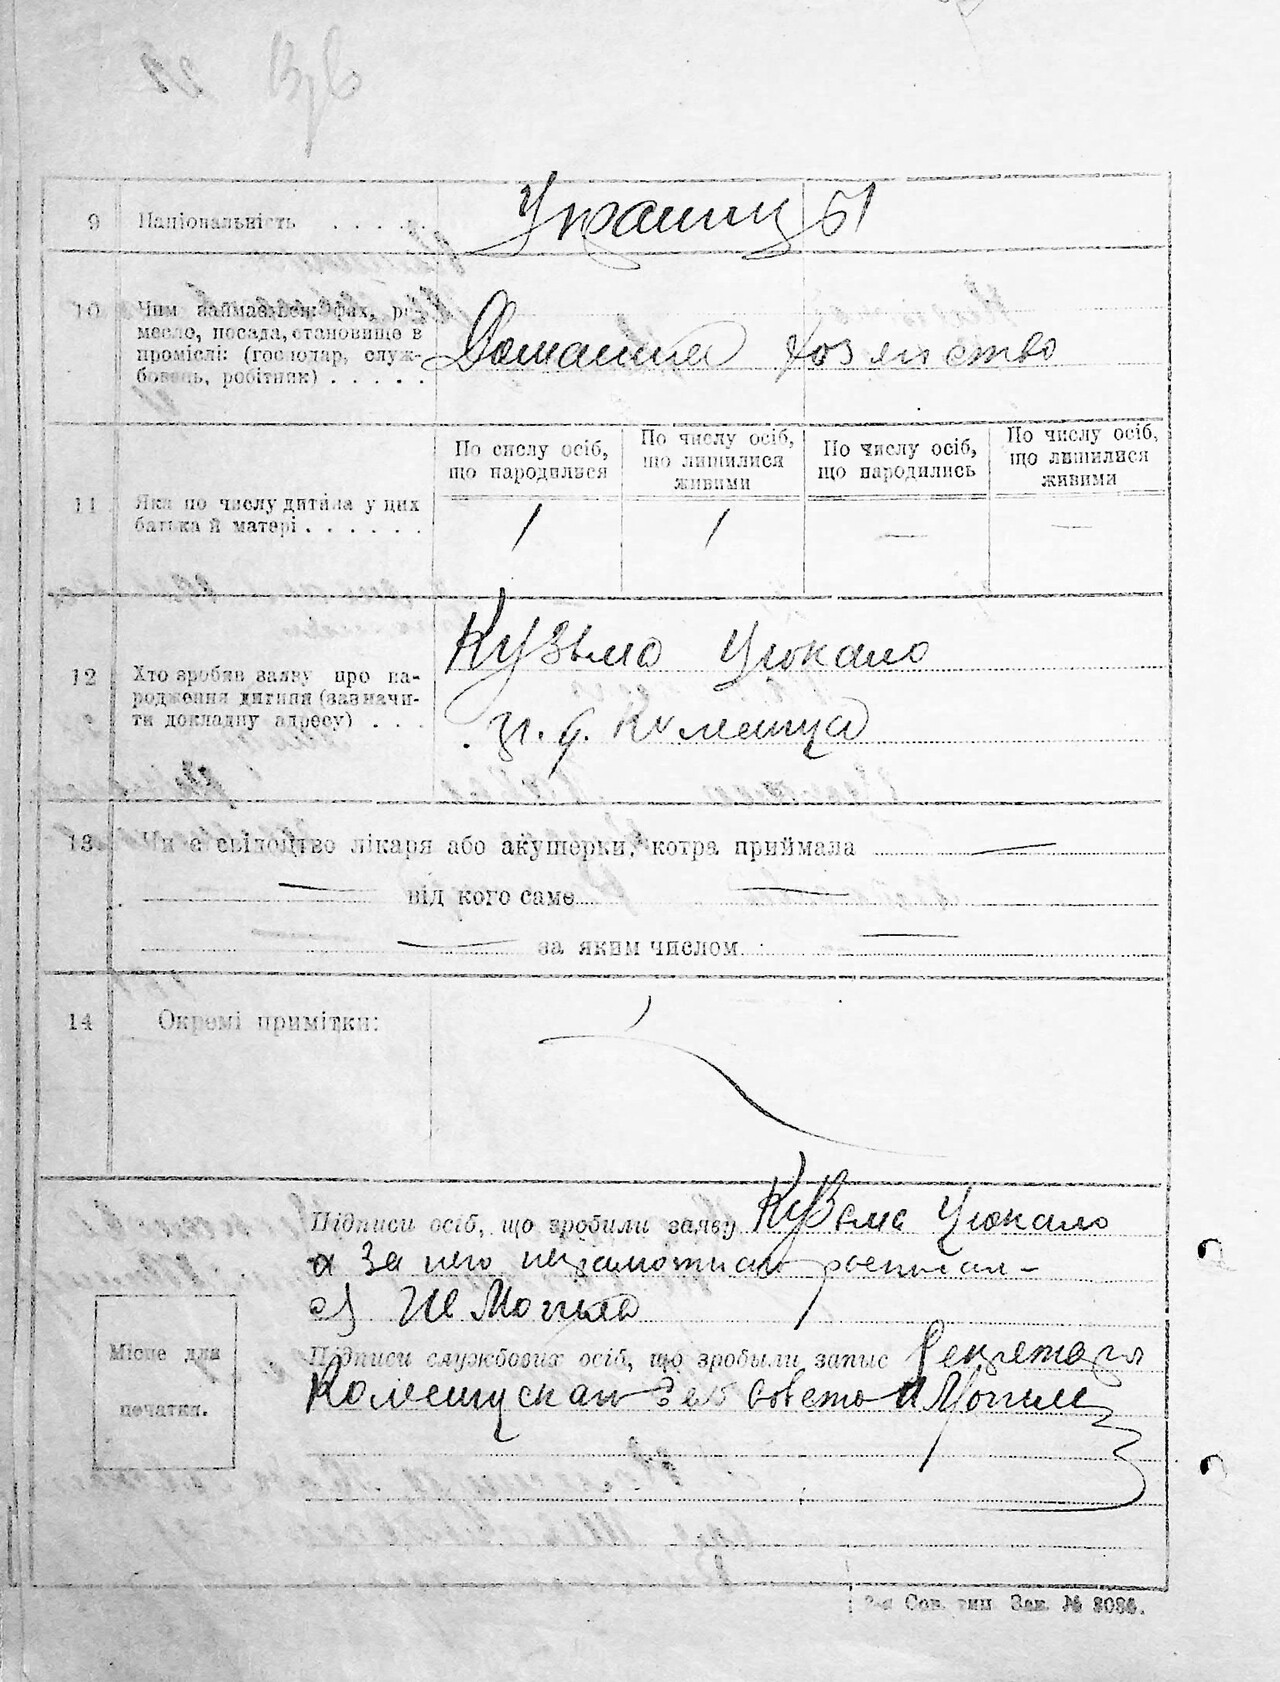 9 Національність . . . . . Украинцы
10 Чим займаються: фах, ре-
месло, посада, становище в
проміслі: (господар, служ-
бовець, робітник) . . . . .
Домашнее хозяйство
По числу осіб, що народилися
По числу осіб, що лишилися живими
По числу осіб, що народились
По числу осіб, що лишилися живими
11 Яка по числу дитина у цих
батька й матері . . . . . .
1 1 — —
12 Хто зробив заяву про на-
родження дитини (зазначи-
ти докладну адресу) . . .
Кузьма Цюкало
13 Чи є свідоцтво лікаря або акушерки, котра приймала —
— від кого саме —
— за яким числом —
14 Окремі примітки:
Підписи осіб, що зробили заяву Кузьма Цюкало
а за него неграмотного росписал-
ся Могила
Місце для
печатки.
Підписи службових осіб, що зробили запис Секретарь
сов. Могила
Сов. тип. Зак. № 8086.